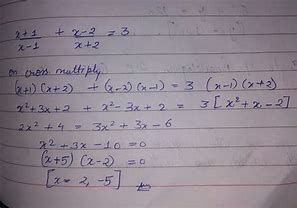 x+1/x-1 + x-2/x+2 = 3
on cross multiply
(x+1)(x+2) + (x-2)(x-1) = 3 (x-1)(x+2)
x²+3x+2 + x²-3x+2 = 3[x²+x-2]
2x²+4 = 3x²+3x-6
x²+3x-10=0
(x+5)(x-2)=0
[x=2, -5]